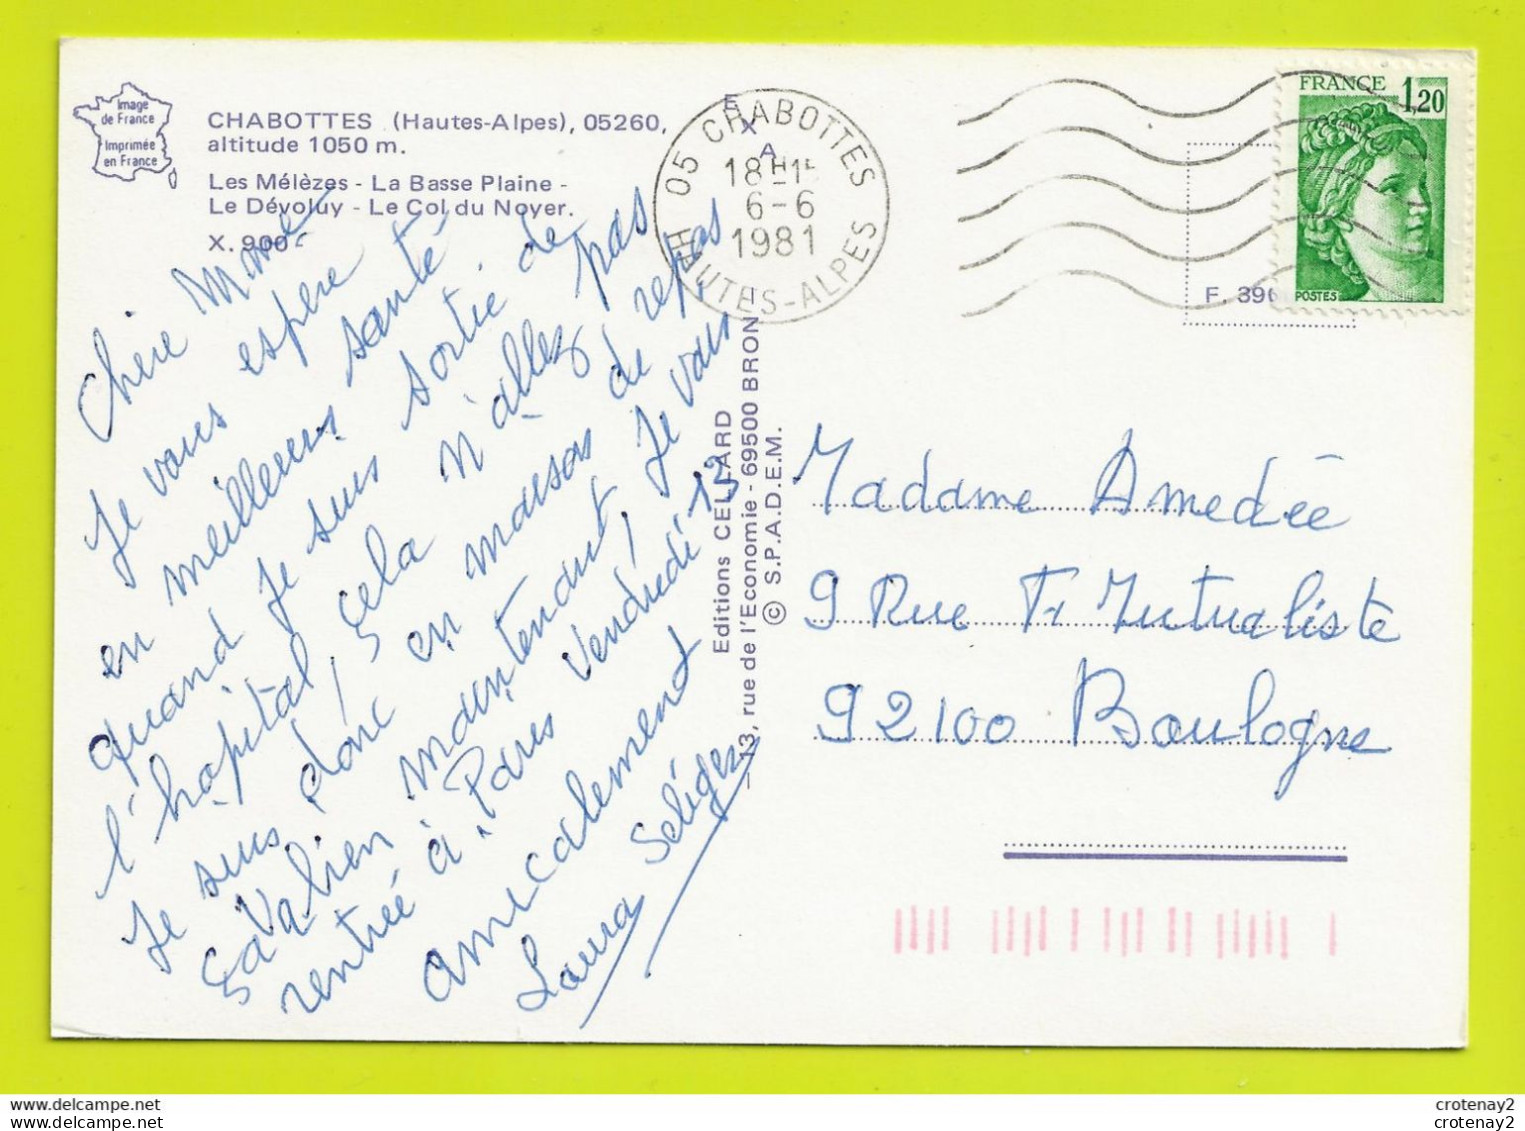 Image
de France
Imprimée
en France
CHABOTTES (Hautes-Alpes), 05260,
altitude 1050 m.
Les Mélèzes - La Basse Plaine -
Le Dévoluy - Le Col du Noyer.
X. 900
Chère Mme
Je vous espère
en meilleure santé
quand je suis sortie de
l'hopital, cela n'allez pas
Je suis donc en maison de repos
ça va bien maintenant, je vais
rentrée à Paris Vendredi 13
amicalement
Laura
EXA
Editions CELLARD
13, rue de l'Economie - 69500 BRON
© S.P.A.D.E.M.
05 CHABOTTES
18H15
6-6
1981
HAUTES-ALPES
FRANCE 1,20
POSTES
F. 396
Madame Amedée
9 Rue Fr Mutualiste
92100 Boulogne
crotenay2
crotenay2